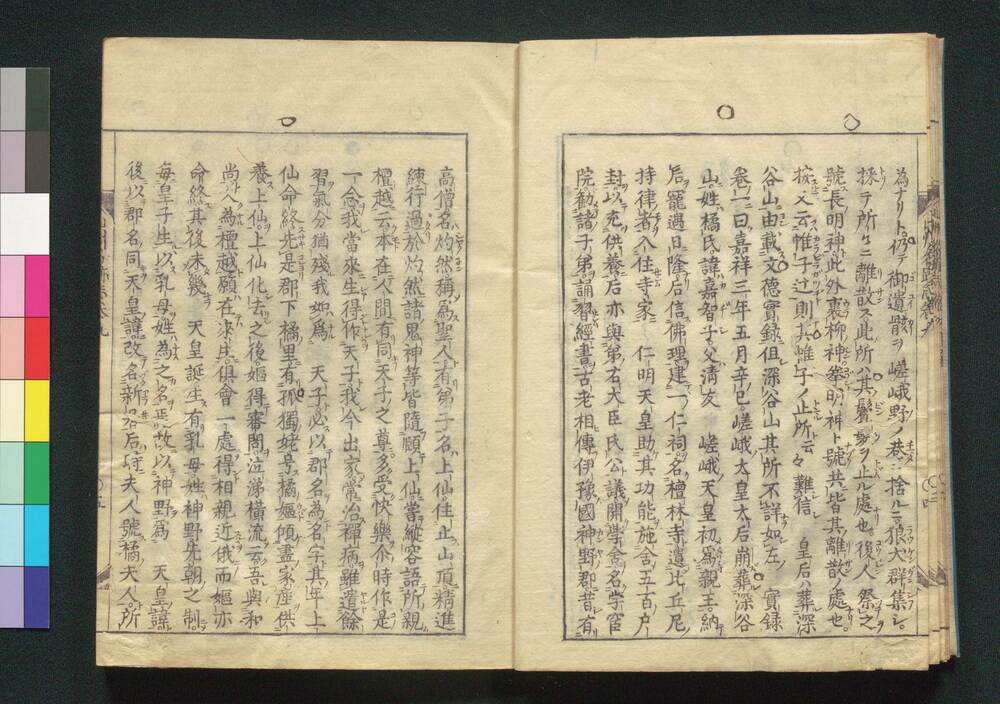 為ナリト仍テ御遺骸ヲ嵯峨野ノ巷ニ捨ルニ狼犬群集シ
採テ所々ニ離散ス此所ハ其鬢ヲ止ル處也後人祭之
號長明神此外裏柳神拳明神ト號共皆其離散ノ處也
按又云惟子辻則其帷子ノ止所云々難信 皇后ハ葬深
谷山由載文德實録伹深谷山其所不詳如左 實録
卷一曰嘉祥三年五月辛巳嵯峨太皇太后崩葬深谷
山姓橘氏諱嘉智子父清友 嵯峨天皇初爲親王納
后寵遇日隆后信佛理建一仁祠名檀林寺遣比丘尼
持律者入住寺家 仁明天皇助其功能施舍五百戸
封以充供養后亦與弟右大臣氏公議開學舍名学官
院勸諸子弟誦習經書古老相傳伊豫國神野郡昔有
高僧名灼然稱爲聖人有弟子名上仙住止山頂精進
練行過於灼然諸鬼神等皆隨頤上仙嘗縱容語所親
檀越云本在人間有同天子之尊多受快樂尒時作是
一念我當來生得作天子我今出家常治禪病雖遣餘
習氣分猶殘我如爲 天子必以郡名為名字其年上
仙命終先是郡下橘里有孤獨姥号橘嫗傾盡家産供
養上仙上仙化去之後嫗得審問泣涕横流云吾與和
尚久為檀越願在來生俱會一處得相親近俄而嫗亦
命終其後未幾 天皇誕生有乳母姓神野先朝之制
毎皇子生以乳母姓為之名焉故以神野為 天皇諱
後以郡名同天皇諱改名新居后時夫人號橘夫人所